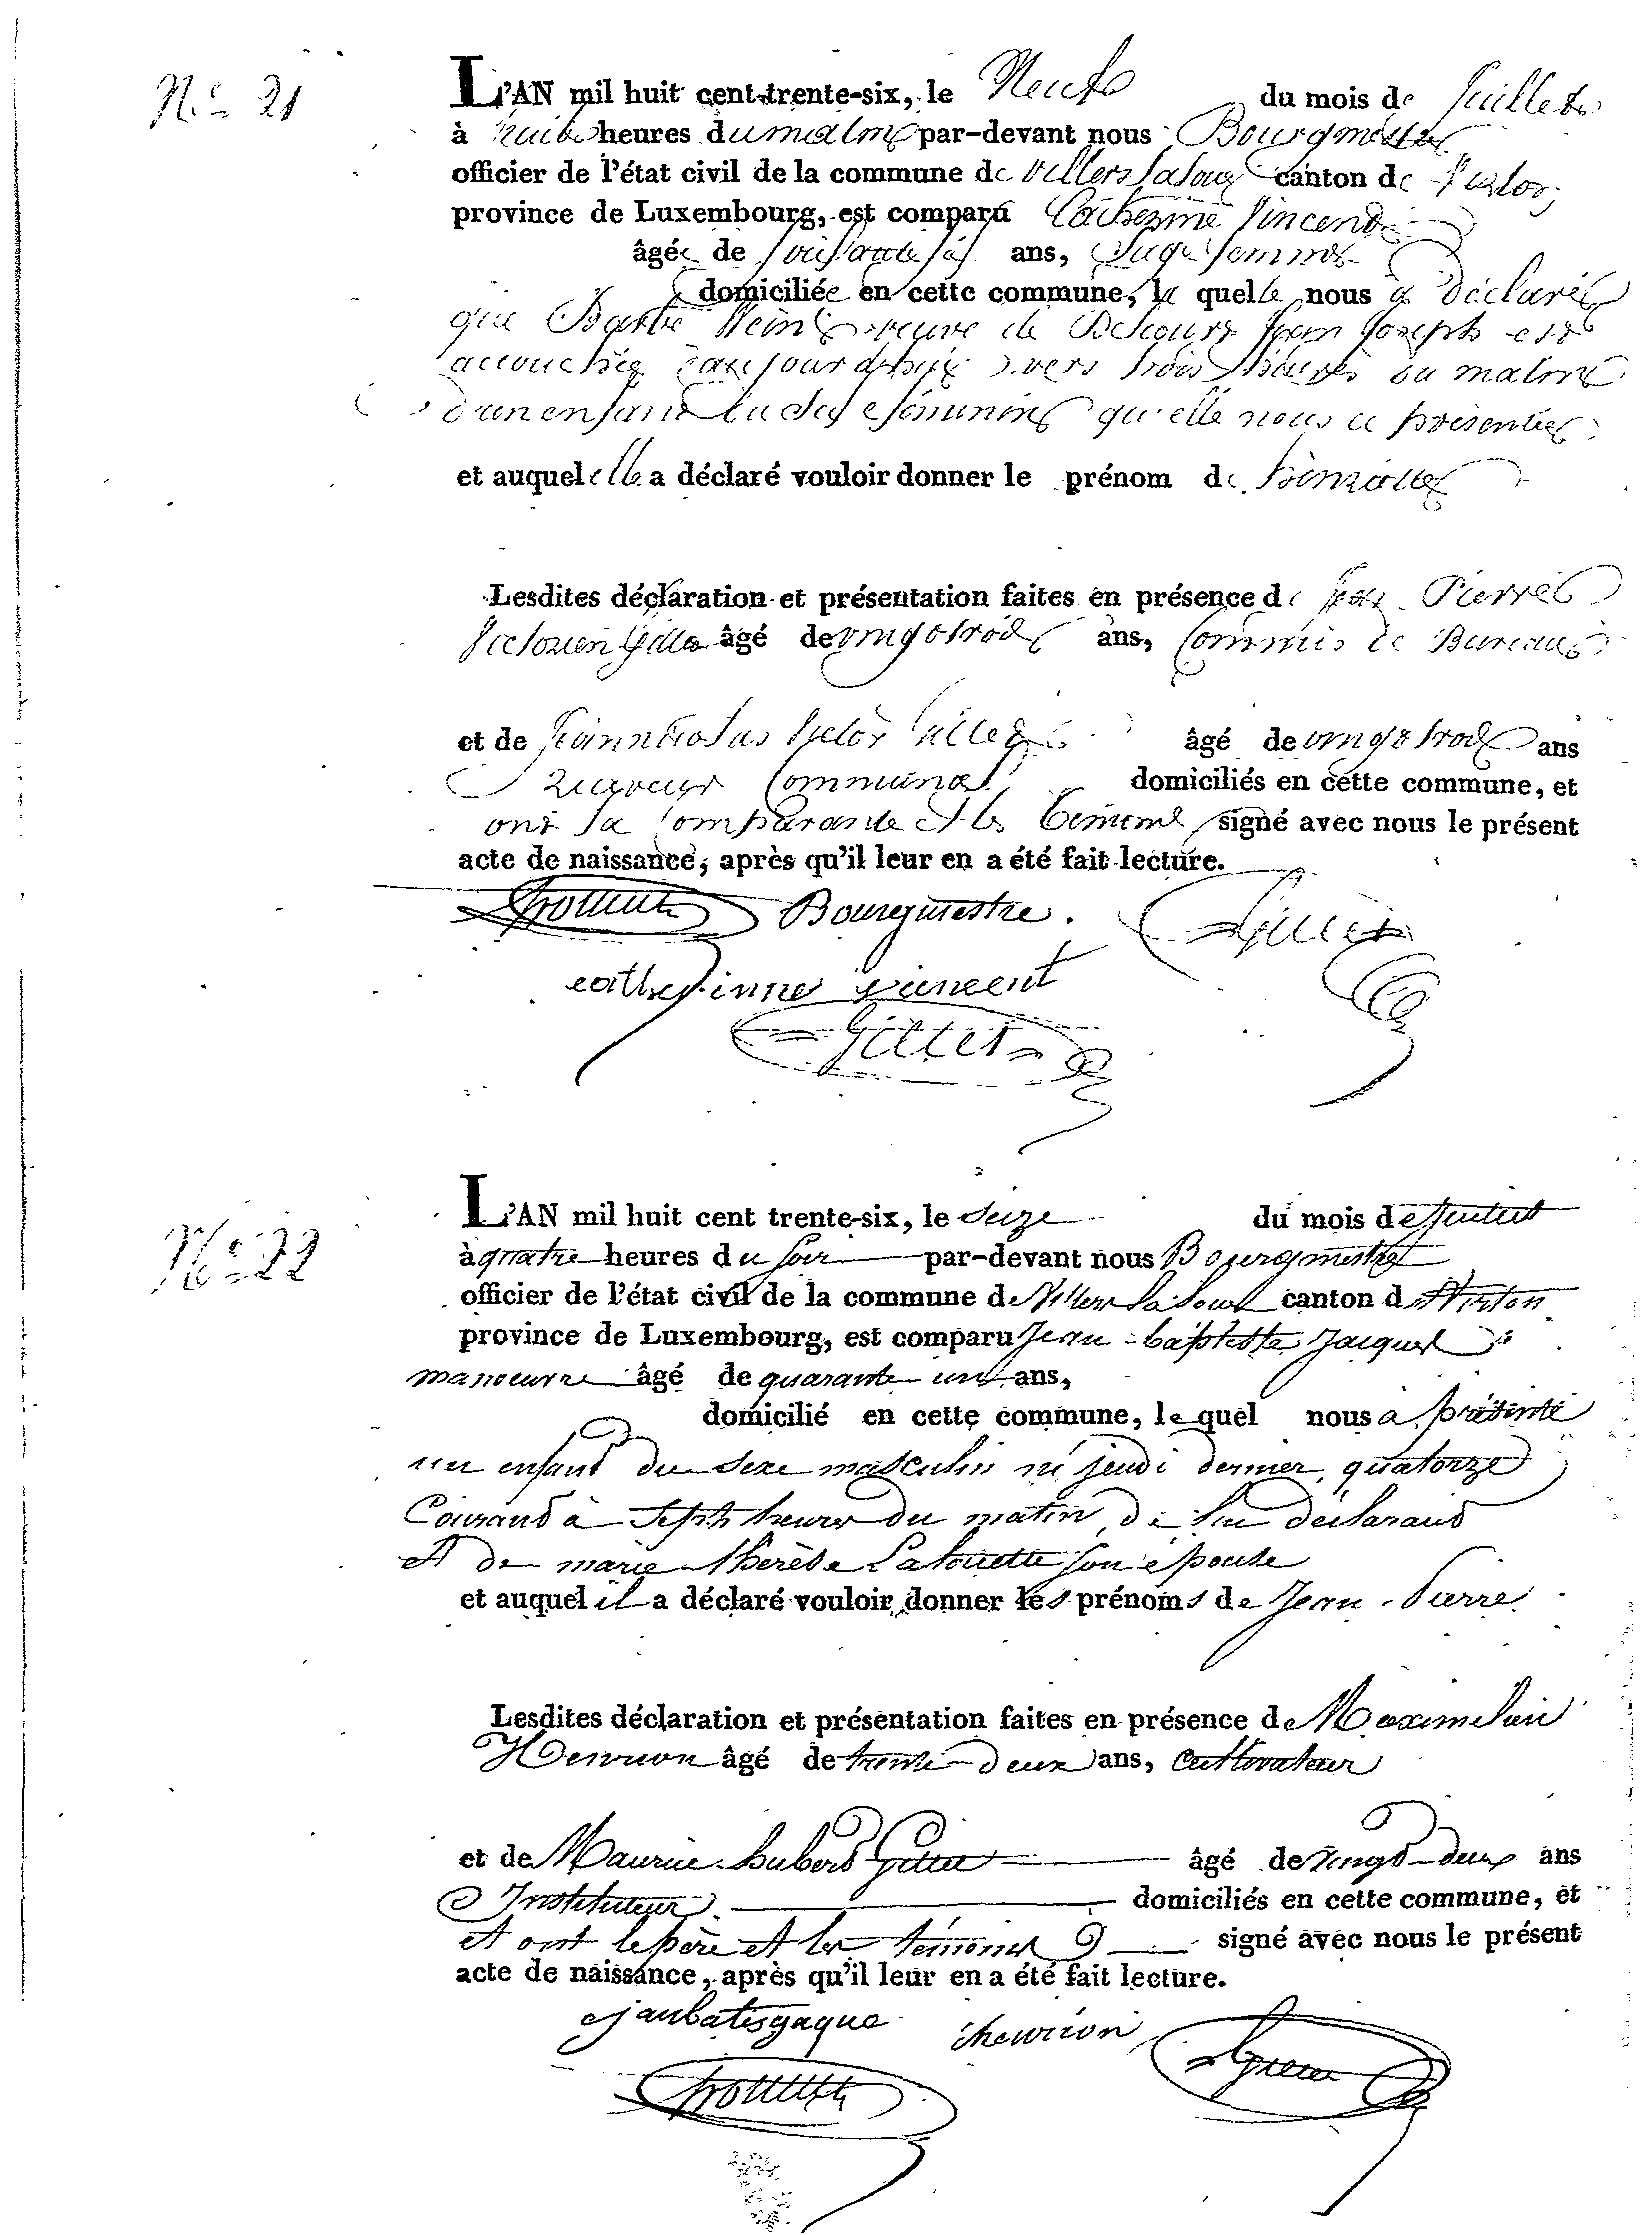 N.° 21
L'AN mil huit cent trente-six, le Neuf du mois de Juillet
à huit heures du matin par-devant nous Bourgmestre
officier de l'état civil de la commune de Villers la loue canton de Virton
province de Luxembourg, est comparu Catherine Vincent
âgée de soissante six ans, Sage femme
domiciliée en cette commune, la quelle nous a déclaré
que Barbe veuve de Jean Joseph est
accouchée aujourdhuy vers trois heures du matin
d'un enfant du sex éféminin qu'elle nous a présenté
et auquel elle a déclaré vouloir donner le prénom de
Lesdites déclaration et présentation faites en présence de Jean Pierre
Victorien Gillet âgé de vingt trois ans, Commis de Bureau
et de Jean nicolas Victor Gillet âgé de vingt trois ans
Receveur Communal domiciliés en cette commune, et
ont la Comparante et les témoins signé avec nous le présent
acte de naissance, après qu'il leur en a été fait lecture.
Bourgmestre. Gillet
catherinne vincent
Gillet
N.° 22
L'AN mil huit cent trente-six, le Seize du mois de Juillet
à quatre heures du soir par-devant nous Bourgmestre
officier de l'état civil de la commune de Villers la loue canton de Virton
province de Luxembourg, est comparu Jean-baptiste Jacques
manoeuvre âgé de quarante un ans,
domicilié en cette commune, le quel nous a présenté
un enfant du sexe masculin né jeudi dernier, quatorze
Courant à sept heures du matin, de lui déclarant
et de marie thérèse Latouette son épouse
et auquel il a déclaré vouloir donner les prénoms de Jean-Pierre
Lesdites déclaration et présentation faites en présence de Maximelien
Henrion âgé de trente-deux ans, Cultivateur
et de Maurice hubert Gillet âgé de vingt-deux ans
Instituteur domiciliés en cette commune, et
et ont le père et les témoins signé avec nous le présent
acte de naissance, après qu'il leur en a été fait lecture.
janbatisgaque henrion